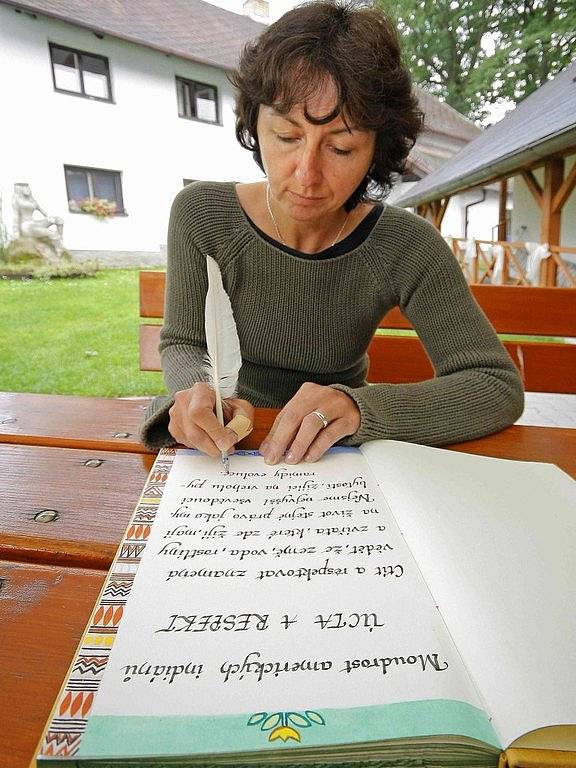 Moudrost amerických indiánů
ÚCTA A RESPEKT
Ctít a respektovat znamená
vědět, že země, voda, rostliny
a zvířata, které zde žijí, mají
na život stejné právo, jako my.
Nejsme nejvyšší vševědoucí
bytosti, žijící na vrcholu py-
ramidy evoluce